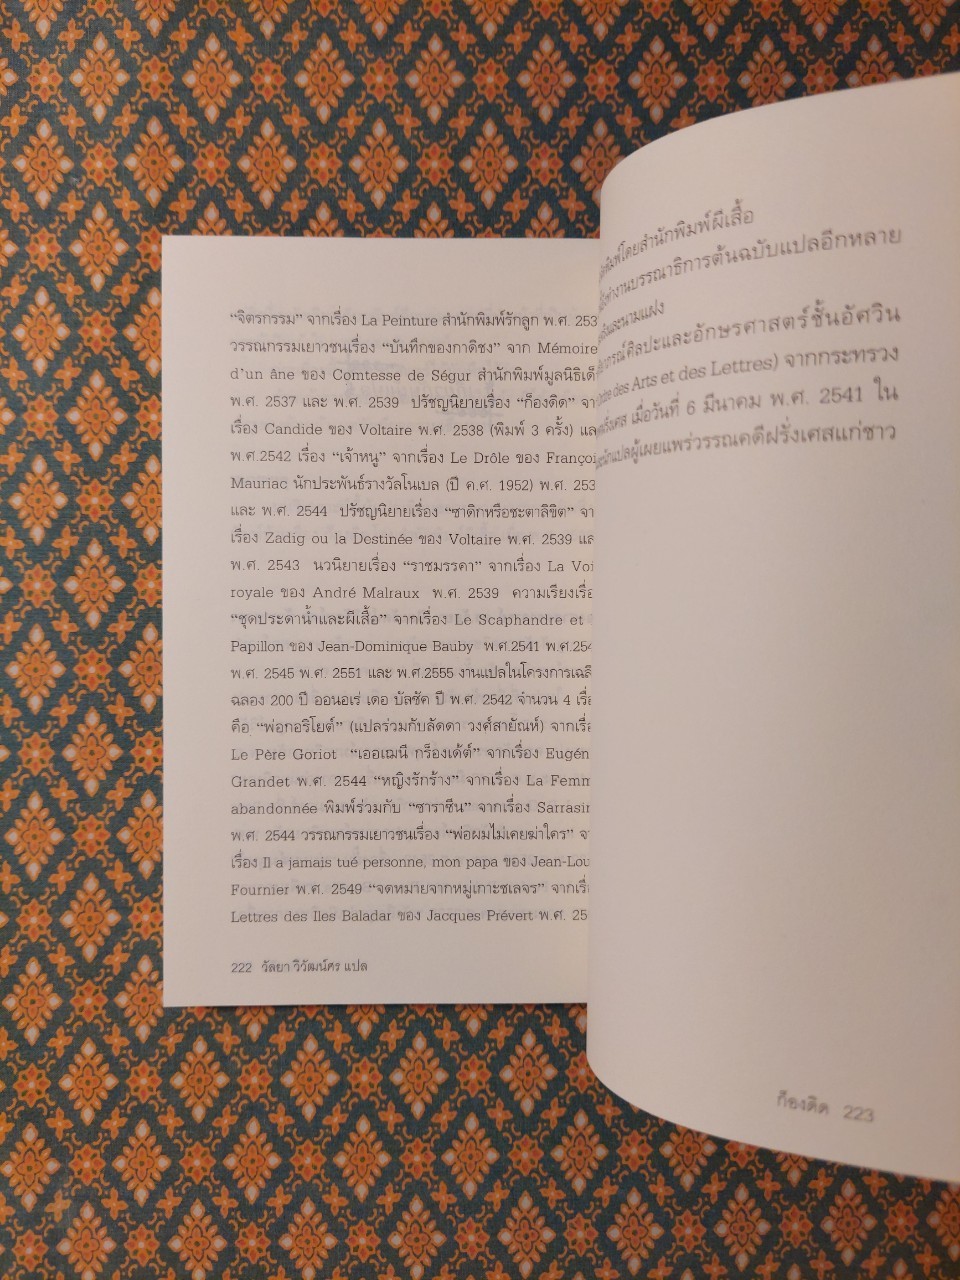 “จิตรกรรม” จากเรื่อง La Peinture สำนักพิมพ์รักลูก พ.ศ. 253
วรรณกรรมเยาวชนเรื่อง “บันทึกของกาดิชง” จาก Mémoire
d’un âne ของ Comtesse de Ségur สำนักพิมพ์มูลนิธิเด็
พ.ศ. 2537 และ พ.ศ. 2539 ปรัชญนิยายเรื่อง “ก็องดิด” จา
เรื่อง Candide ของ Voltaire พ.ศ. 2538 (พิมพ์ 3 ครั้ง) แล
พ.ศ.2542 เรื่อง “เจ้าหนู” จากเรื่อง Le Drôle ของ Françoi
Mauriac นักประพันธ์รางวัลโนเบล (ปี ค.ศ. 1952) พ.ศ. 253
และ พ.ศ. 2544 ปรัชญนิยายเรื่อง “ซาดิกหรือชะตาลิขิต” จา
เรื่อง Zadig ou la Destinée ของ Voltaire พ.ศ. 2539 แล
พ.ศ. 2543 นวนิยายเรื่อง “ราชมรรคา” จากเรื่อง La Voi
royale ของ André Malraux พ.ศ. 2539 ความเรียงเรื่อ
“ชุดประดาน้ำและผีเสื้อ” จากเรื่อง Le Scaphandre et
Papillon ของ Jean-Dominique Bauby พ.ศ.2541 พ.ศ.254
พ.ศ. 2545 พ.ศ. 2551 และ พ.ศ.2555 งานแปลในโครงการเฉลิ
ฉลอง 200 ปี ออนอเร่ เดอ บัลซัค ปี พ.ศ. 2542 จำนวน 4 เรื่อ
คือ “พ่อกอริโยต์” (แปลร่วมกับลัดดา วงศ์สายัณห์) จากเรื่อ
Le Père Goriot “เออเฌนี กร็องเด้ต์” จากเรื่อง Eugéni
Grandet พ.ศ. 2544 “หญิงรักร้าง” จากเรื่อง La Femm
abandonnée พิมพ์ร่วมกับ “ซาราซีน” จากเรื่อง Sarrasin
พ.ศ. 2544 วรรณกรรมเยาวชนเรื่อง “พ่อผมไม่เคยฆ่าใคร” จา
เรื่อง Il a jamais tué personne, mon papa ของ Jean-Lou
Fournier พ.ศ. 2549 “จดหมายจากหมู่เกาะชเลจร” จากเรื่อ
Lettres des Iles Baladar ของ Jacques Prévert พ.ศ. 25
222 วัลยา วิวัฒน์ศร แปล
พิมพ์โดยสำนักพิมพ์ผีเสื้อ
ทำงานบรรณาธิการต้นฉบับแปลอีกหลาย
และนามแฝง
ศิลปะและอักษรศาสตร์ชั้นอัศวิน
des Arts et des Lettres) จากกระทรวง
เมื่อวันที่ 6 มีนาคม พ.ศ. 2541 ใน
นักแปลผู้เผยแพร่วรรณคดีฝรั่งเศสแก่ชาว
ก็องดิด 223